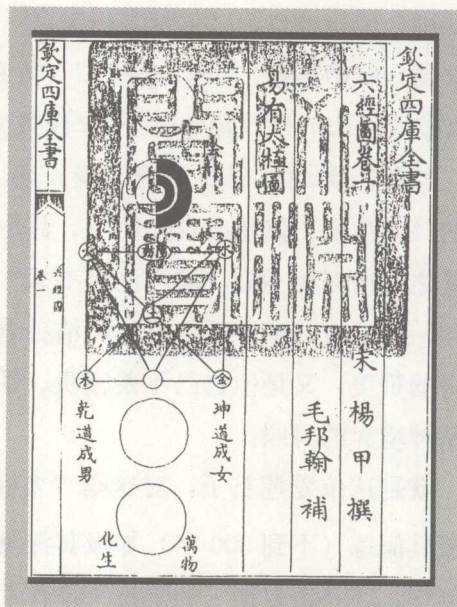 欽定四庫全書
六經圖卷一
宋 楊甲 撰
毛邦翰 補
易有太極圖
陰靜
陽動
火
水
土
木
金
坤道成女
乾道成男
萬物
化生
欽定四庫全書
六經圖
卷一